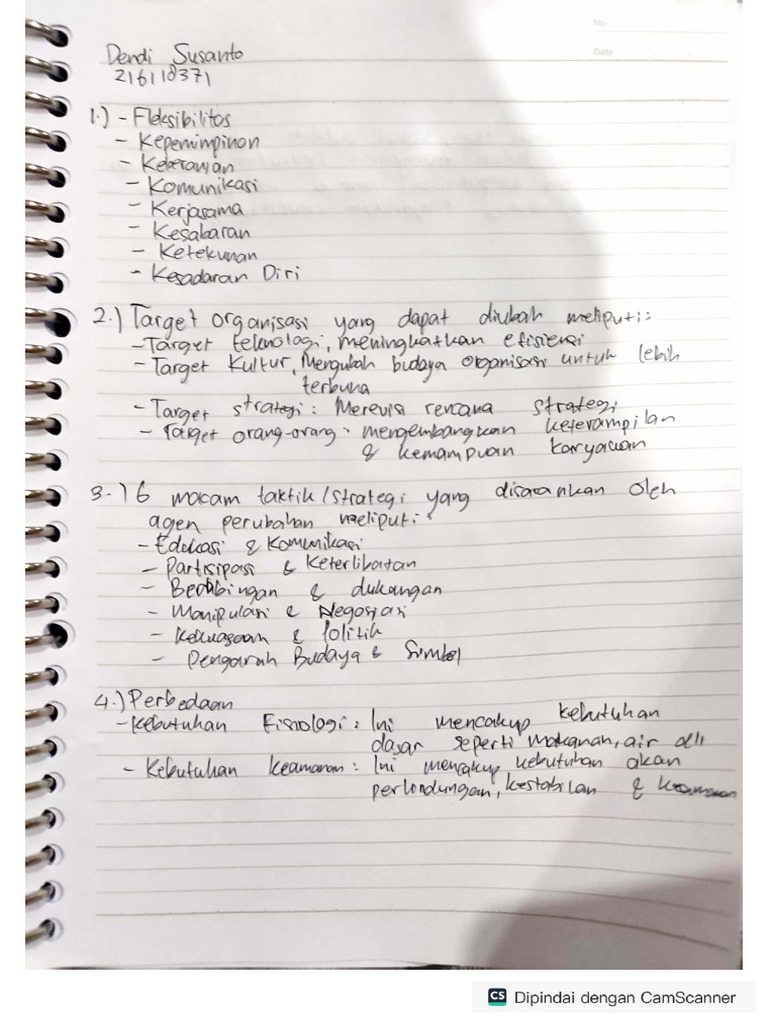 No.
Date
Dendi Susanto
216118371
1.) - Fleksibilitas
- Kepemimpinan
- Keberanian
- Komunikasi
- Kerjasama
- Kesabaran
- Ketekunan
- Kesadaran Diri
2.) Target organisasi yang dapat diubah meliputi:
- Target teknologi, meningkatkan efisiensi
- Target Kultur, Mengubah budaya organisasi untuk lebih
terbuka
- Target strategi : Merevisi rencana strategi
- Target orang-orang : mengembangkan keterampilan
& kemampuan karyawan
3.) 6 macam taktik/strategi yang disarankan oleh
agen perubahan meliputi :
- Edukasi & Komunikasi
- Partisipasi & Keterlibatan
- & dukungan
- Manipulasi & Negosiasi
- Kekuasaan & Politik
- Pengaruh Budaya & Simbol
4.) Perbedaan
- Kebutuhan Fisiologi : Ini mencakup kebutuhan
dasar seperti makanan, air dll
- Kebutuhan keamanan : Ini mencakup kebutuhan akan
perlondungan, kestabilan & keamanan
CS Dipindai dengan CamScanner